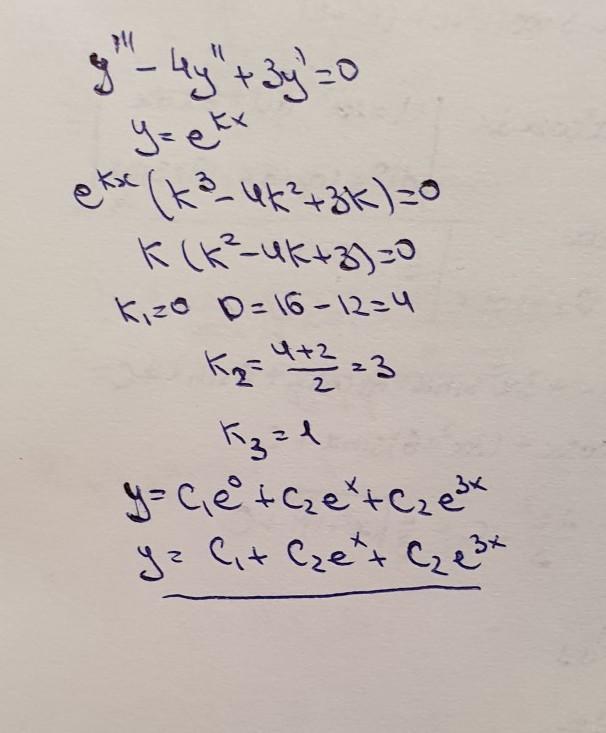 y''' - 4y'' + 3y' = 0
y = e^{kx}
e^{kx} (k^3 - 4k^2 + 3k) = 0
k (k^2 - 4k + 3) = 0
k_1 = 0 D = 16 - 12 = 4
k_2 = \frac{4+2}{2} = 3
k_3 = 1
y = C_1 e^0 + C_2 e^x + C_2 e^{3x}
y = C_1 + C_2 e^x + C_2 e^{3x}